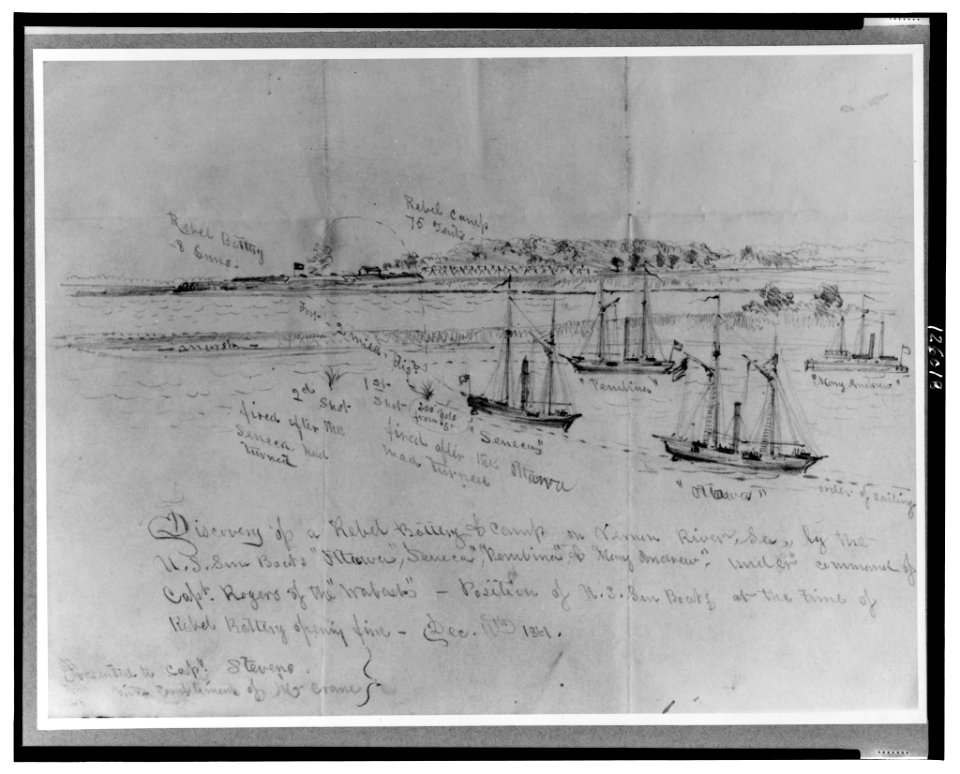 Rebel Camp
75 Tents.
Rebel Battery
8 Guns.
2 miles dist.
2d Shot
fired after the
Seneca had
turned
1st
Shot
200 yds
from "S"
fired after the Ottawa
had turned
"Seneca"
"Pembina"
"Mary Andrew"
"Ottawa"
order of sailing
Discovery of a Rebel Battery & Camp on Vernon River, Ga, by the
U.S. Gun Boats "Ottawa", Seneca", "Pembina", & "Mary Andrew". under command of
Capt. Rogers of the "Wabash" – Position of U.S. Gun Boats at the time of
Rebel Battery opening fire – Dec. 1861.
Presented to Capt. Stevens.
With Compliments of Mr Crane
12618